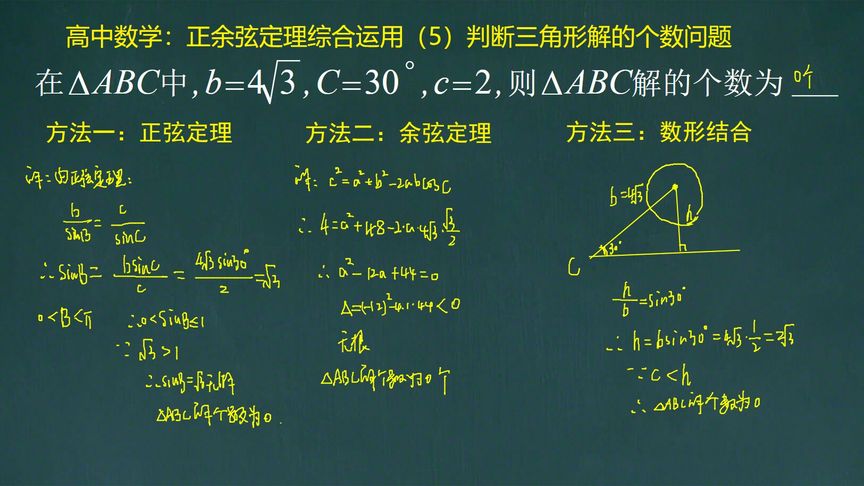 高中数学：正余弦定理综合运用（5）判断三角形解的个数问题
在△ABC中,b=4√3,C=30°,c=2,则△ABC解的个数为 0个
方法一：正弦定理
解：由正弦定理：
b/sinB = c/sinC
∴ sinB = bsinC/c = 4√3sin30°/2 = √3
0<B<π ∴0<sinB≤1
∵ √3>1
∴sinB=√3无解
△ABC解个数为0.
方法二：余弦定理
解：c²=a²+b²-2abcosC
∴ 4=a²+48-2·a·4√3·√3/2
∴ a²-12a+44=0
△=(-12)²-4·1·44<0
无根
△ABC解个数为0个
方法三：数形结合
b=4√3
h
30°
C
h/b=sin30°
∴ h=bsin30°=4√3·1/2=2√3
∵ c<h
∴ △ABC解个数为0